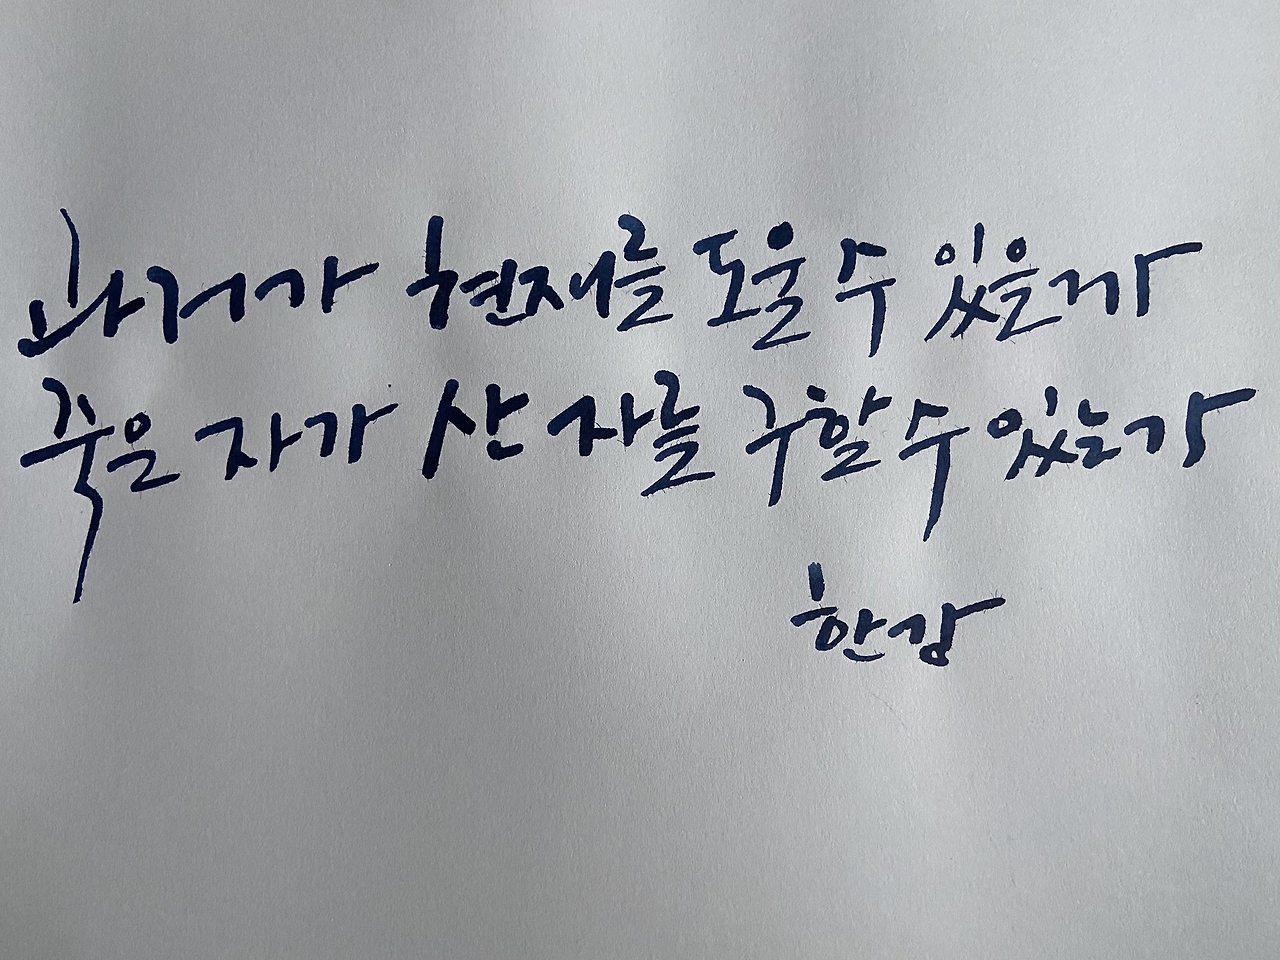 과거가 현재를 도울 수 있을까
죽은 자가 산 자를 구할 수 있는가
한강